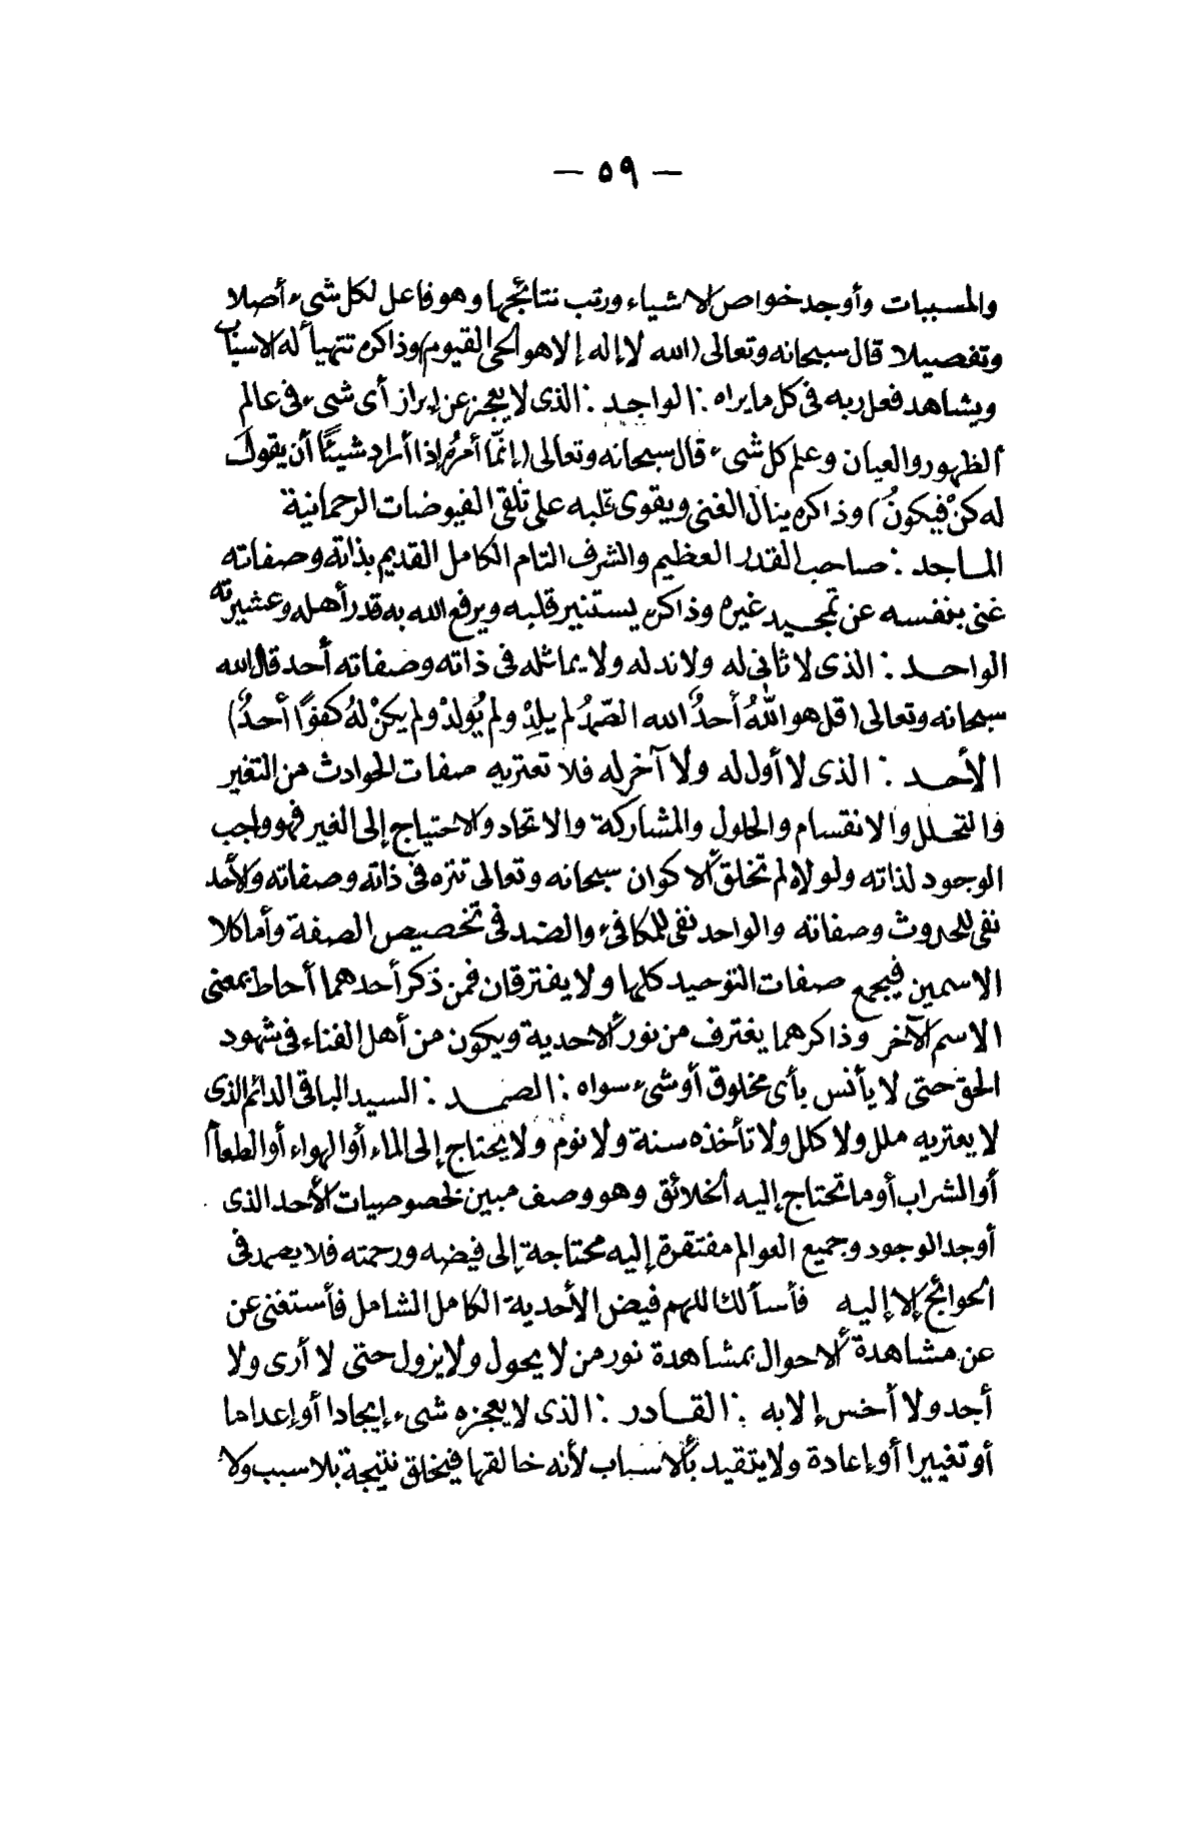 — ٥٩ —
والمسببات وأوجد خواص الاشياء ورتب نتائجها وهو فاعل لكل شيء أصلا
وتفصيلا قال سبحانه وتعالى (الله لا إله إلا هو الحى القيوم) وذاكره تتهيأ له الاسباب
ويشاهد فعل ربه فى كل ما يراه .: الواجد : الذى لا يعجز عن إبراز أى شىء فى عالم
الظهور والعيان وعلم كل شىء قال سبحانه وتعالى (إنمّا أمرُه إذا أراد شيئًا أن يقولَ
له كنْ فيكونُ) وذاكره ينال الغنى ويقوى قلبه على تلقى الفيوضات الرحمانية
الماجد : صاحب القدر العظيم والشرف التام الكامل القديم بذاته وصفاته
غنى بنفسه عن تمجيد غيره وذاكره يستنير قلبه ويرفع الله به قدر أهله وعشيرته
الواحد : الذى لا ثانى له ولا ند له ولا يماثله فى ذاته وصفاته أحد قال الله
سبحانه وتعالى (قل هو اللهُ أحدٌ الله الصّمدُ لم يلِدْ ولم يُولدْ ولم يكنْ لهُ كفوًا أحدٌ)
الأحد : الذى لا أول له ولا آخر له فلا تعتريه صفات الحوادث من التغير
والتحلل والانقسام والحلول والمشاركة والاتحاد والاحتياج إلى الغير فهو واجب
الوجود لذاته ولولاه لم تخلق الأكوان سبحانه وتعالى تنزه فى ذاته وصفاته والأحد
نفى للحدوث وصفاته والواحد نفى للمكافىء والضد فى تخصيص الصفة وأما كلا
الاسمين فيجمع صفات التوحيد كلها ولا يفترقان فمن ذكر أحدهما أحاط بمعنى
الاسم الآخر وذاكرهما يغترف من نور الأحدية ويكون من أهل الفناء فى شهود
الحق حتى لا يأنس بأى مخلوق أو شىء سواه .: الصمد : السيد الباقى الدائم الذى
لا يعتريه ملل ولا كلل ولا تأخذه سنة ولا نوم ولا يحتاج إلى الماء أو الهواء أو الطعام
أو الشراب أو ما تحتاج إليه الخلائق وهو وصف مبين لخصوصيات الأحد الذى
أوجد الوجود وجميع العوالم مفتقرة إليه محتاجة إلى فيضه ورحمته فلا يصمد فى
الحوائج إلا إليه فأسألك اللهم فيض الأحدية الكامل الشامل فأستغنى عن
عن مشاهدة الأحوال بمشاهدة نور من لا يحول ولا يزول حتى لا أرى ولا
أجد ولا أخس إلا به .: القادر : الذى لا يعجزه شىء إيجادا أو إعداما
أو تغييرا أو إعادة ولا يتقيد بالأسباب لأنه خالقها فيخلق نتيجة بلا سبب ولا